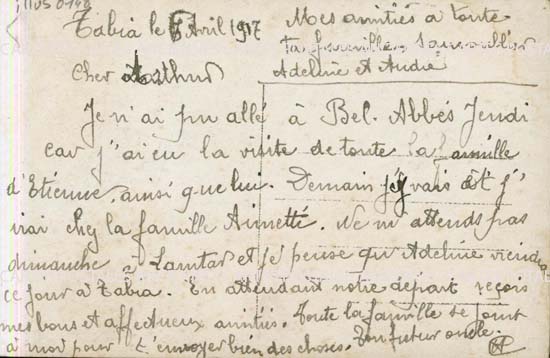 Tabia le 6 Avril 1917
Cher Arthur
Je n'ai pu allé à Bel-Abbés Jeudi
car j'ai eu la visite de toute la famille
d'Etienne, ainsi que lui. Demain j'y vais et j'
irai chez la famille Aimetti. Ne m'attends pas
dimanche à Lamtar et je pense qu'Adeline viendra
ce jour à Tabia. En attendant notre départ reçois
mes bons et affectueux amitiés. Toute la famille se joint
à moi pour t'envoyer bien des choses. Ton futur oncle.
Mes amitiés à toute
ta famille sans oublier
Adeline et André